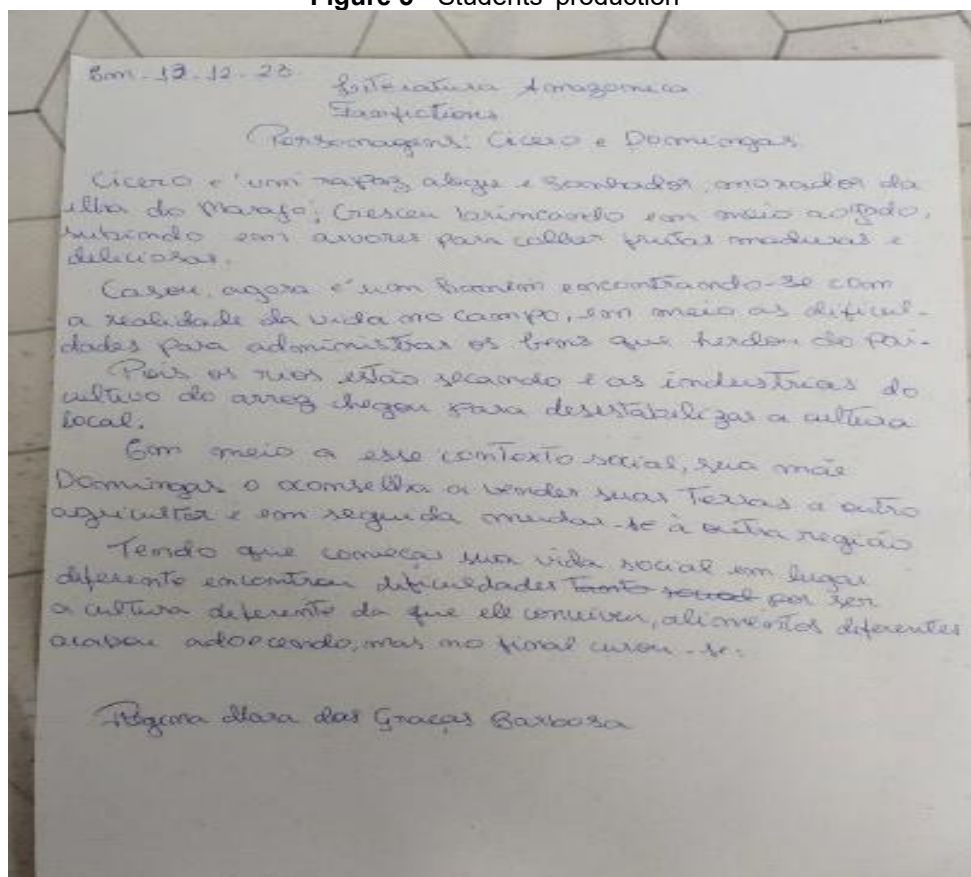 Figure 3 - Students' production
Em - 13-12-23
Literatura Amazonica
Fanfictions
Personagens: Cicero e Domingas
Cicero é um rapaz alegre e sonhador, morador da
ilha do Marajo; Cresceu brincando em meio ao gado,
subindo em arvores para colher frutas maduras e
deliciosas.
Casou, agora é um homem encontrando-se com
a realidade da vida no campo, em meio as dificul-
dades para administrar os bens que herdou do Pai.
Pois os rios estão secando e as industrias do
cultivo do arroz chegou para desestabilizar a cultura
local.
Em meio a esse contexto social, sua mãe
Domingas o aconselha a vender suas Terras a outro
agricultor e em seguida mudar-se à outra região
Tendo que começar sua vida social em lugar
diferente encontrou dificuldades tanto social por ser
a cultura diferente da que ele conviveu, alimentos diferentes
acabou adoecendo, mas no final curou-se.
das Graças Barbosa